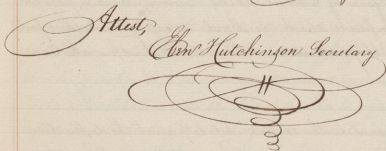 Attest,
Eben Hutchinson Secretary